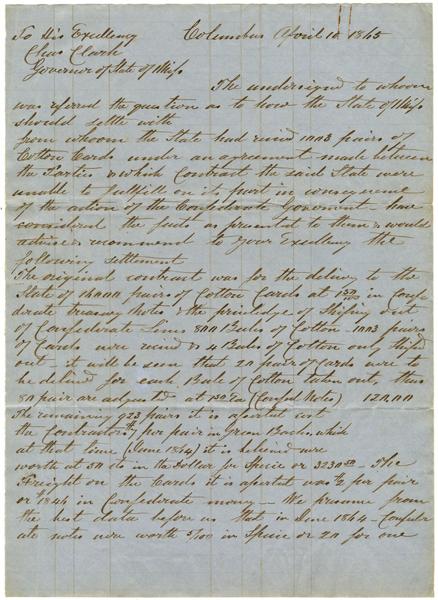 To His Exellency Columbus April 10 1865
Chas Clark
Governor of State of Miss
The undersigned to whom
was referred the question as to how the State of Miss
should settle with
from whom the State had recived 1003 pairs of
Cotton Cards under an agreement made between
the Parties & which Contract the said State were
unable to fullfill on its part in consequence
of the action of the Confederate Goverment - have
considered the facts as presented to them & would
advise & recommend to your Exellency the
following settlement
The original contract was for the delivery to the
State of 16000 pairs of Cotton Cards at in Confe-
derate treasury Notes & the priveledge of Shiping out
of Confederate Lines 800 Bales of Cotton - 1003 pairs
of Cards were recived & 4 Bales of Cotton only shiped
out - it will be seen that 20 pair of Cards were to
be deliverd for each Bale of Cotton taken out, thus
80 pair are adjusted at (Confed Notes) 120.00
The remaining 923 pairs it is asserted cost
the Contractors $7 per pair in Green Backs, which
at that time (June 1864) it is believed were
worth at 50 cts in the Dollar for Specie or 3230.50 - The
Freight on the Cards it is asserted was $2 per pair
or $1846 in Confederate money - We presume from
the best data before us that in June 1864 - Confeder
ate notes were worth 5/100 in Specie or 20 for one